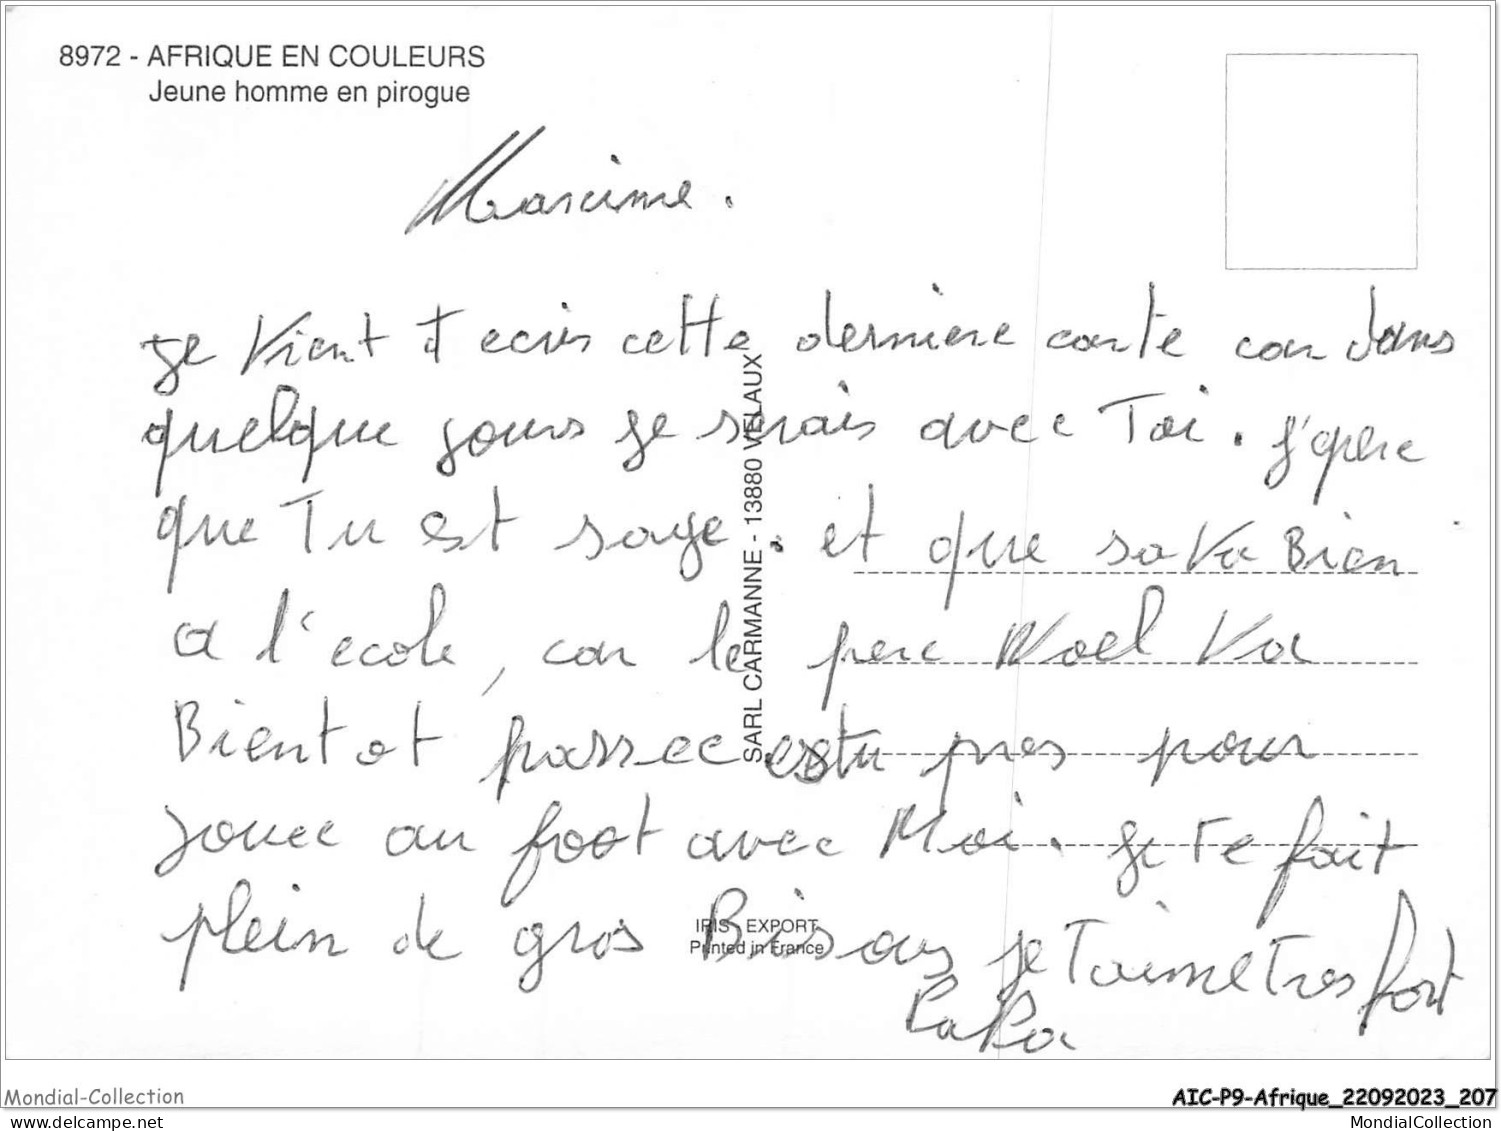 8972 - AFRIQUE EN COULEURS
Jeune homme en pirogue
Maxime.
je Vient T ecris cette derniere carte car dans
quelque jours je serais avec Toi. j'epere
que Tu est sage. et que sa Va Bien
a l'ecole, car le pere Noel Va
Bientot passee es tu pres pour
jouee au foot avec Moi. je Te fait
plein de gros Bisous je Taime Tres fort
PaPa
SARL CARMANNE - 13880 VELAUX
IRIS EXPORT
Printed in France
Mondial-Collection
AIC-P9-Afrique_22092023_207
www.delcampe.net
MondialCollection